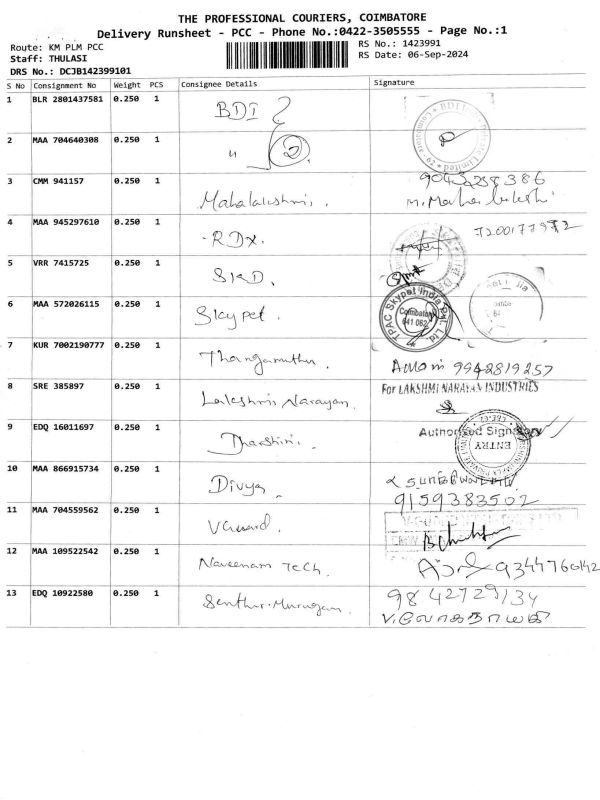 THE PROFESSIONAL COURIERS, COIMBATORE
Delivery Runsheet - PCC - Phone No.:0422-3505555 - Page No.:1
Route: KM PLM PCC
RS No.: 1423991
Staff: THULASI
RS Date: 06-Sep-2024
DRS No.: DCJB142399101
S No Consignment No Weight PCS Consignee Details Signature
1 BLR 2801437581 0.250 1 BDI
2 MAA 704640308 0.250 1 "
3 CMM 941157 0.250 1 Mahalakshmi. 9043258386
M. Mahalakshmi
4 MAA 945297610 0.250 1 RDX. 7200177972
5 VRR 7415725 0.250 1 SKD.
6 MAA 572026115 0.250 1 Skypet. TPAC Skypet India Pvt. Ltd. Coimbatore 641 062
7 KUR 7002190777 0.250 1 Thangamuthu. 9942819257
8 SRE 385897 0.250 1 Lakshmi Narayan. For LAKSHMI NARAYAN INDUSTRIES
Authorised Signatory
9 EDQ 16011697 0.250 1 Dharshini. ENTRY
10 MAA 866915734 0.250 1 Divya.
9159383502
11 MAA 704559562 0.250 1 VGuard.
12 MAA 109522542 0.250 1 Naveenam Tech. 9344760142
13 EDQ 10922580 0.250 1 Senthur Murugan. 9842729134
V. லோகநாயகி